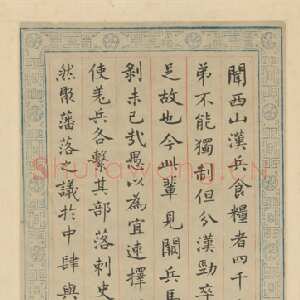 聞西山漢兵食糧者四千
弟不能獨制但分漢勁卒
足故也今此輩見闕兵馬
剝未已哉愚以為宜速擇
使羌兵各繫其部落刺史
然聚藩落之議於中肆與